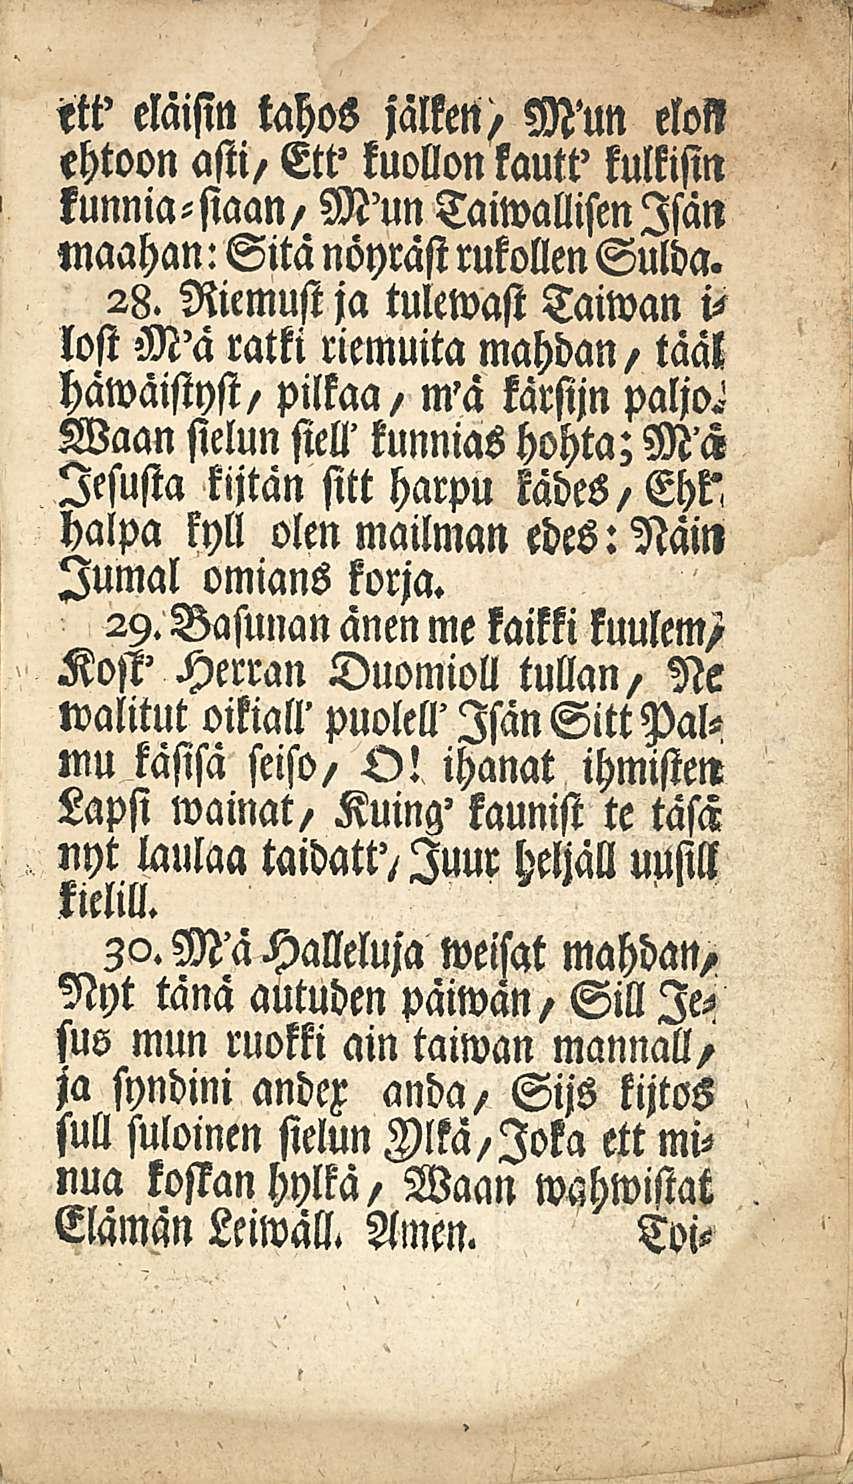 ett' eläisin tahos jälken, M'un elon
ehtoon asti, Ett' kuollon kautt' kulkisin
kunnia-siaan, M'un Taiwallisen Isän
maahan: Sitä nöyräst rukollen Sulda.
28. Riemust ja tulewast Taiwan i-
lost M'ä ratki riemuita mahdan, tääl
häwäistyst, pilkaa, m'ä kärsijn paljo.
Waan sielun siell' kunnias hohta; M'ä
Jesusta kijtän sitt harpu kädes, Ehk'
halpa kyll olen mailman edes: Näin
Jumal omians korja.
29. Basunan änen me kaikki kuulem,
Kosk' Herran Duomioll tullan, Ne
walitut oikiall' puolell' Isän Sitt Pal-
mu käsisä seiso, O! ihanat ihmisten
Lapsi wainat, Kuing' kaunist te täsä
nyt laulaa taidatt', Juur heljäll uusill
kielill.
30. M'ä Halleluja weisat mahdan,
Nyt tänä autuden päiwän, Sill Je-
sus mun ruokki ain taiwan mannall,
ja syndini andex anda, Sijs kijtos
sull suloinen sielun Ylkä, Joka ett mi-
nua koskan hylkä, Waan wahwistat
Elämän Leiwäll. Amen. Toi-